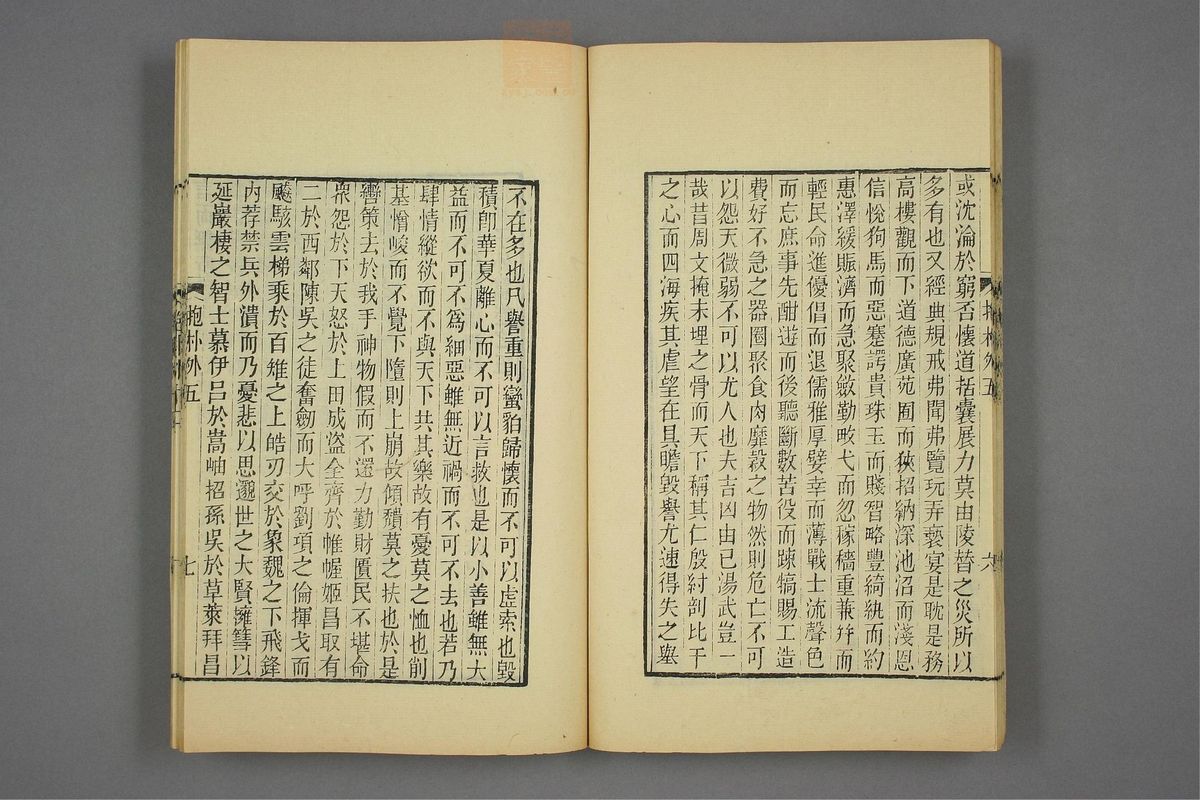 或沈淪於窮否懷道括囊展力莫由陵替之災所以
多有也又經典規戒弗聞弗覽玩弄褻宴是耽是務
高樓觀而下道德廣苑囿而狹招納深池沼而淺恩
信悅狗馬而惡蹇諤貴珠玉而賤智略豐綺紈而約
惠澤緩賑濟而急聚斂勤畋弋而忽稼穡重兼幷而
輕民命進優倡而退儒雅厚嬖幸而薄戰士流聲色
而忘庶事先酣遊而後聽斷數苦役而踈犒賜工造
費好不急之器圈聚食肉靡穀之物然則危亡不可
以怨天微弱不可以尤人也夫吉凶由已湯武豈一
哉昔周文掩未埋之骨而天下稱其仁殷紂剖比干
之心而四海疾其虐望在具瞻毀譽尤速得失之舉
抱朴外五
六
不在多也凡譽重則蠻貊歸懷而不可以虛索也毀
積卽華夏離心而不可以言救也是以小善雖無大
益而不可不爲細惡雖無近禍而不可不去也若乃
肆情縱欲而不與天下共其樂故有憂莫之恤也削
基憎峻而不覺下墮則上崩故傾穨莫之扶也於是
轡策去於我手神物假而不還力勤財匱民不堪命
衆怨於下天怒於上田成盜全齊於帷幄姬昌取有
二於西鄰陳吳之徒奮劒而大呼劉項之倫揮戈而
飈駭雲梯乘於百雉之上皓刃交於象魏之下飛鋒
內荐禁兵外潰而乃憂悲以思邈世之大賢擁篲以
延巖棲之智士慕伊呂於嵩岫招孫吳於草萊拜昌
抱朴外五
七